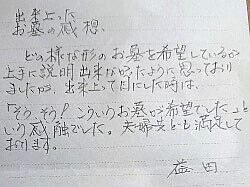 出来上った
お墓の感想、
どの様な形のお墓を希望しているか
上手に説明出来なかったように思っており
ましたが、出来上って目にした時は、
「そう、そう！こういうお墓が希望でした。」と
いう感触でした。夫婦共とも満足して
おります。
益田